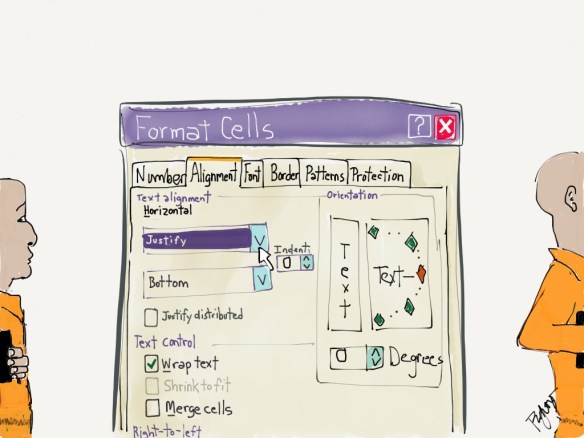 Format Cells ?
Number Alignment Font Border Patterns Protection
Text alignment
Horizontal
Justify
Indent:
0
Bottom
Justify distributed
Text control
Wrap text
Shrink to fit
Merge cells
Right-to-left
Orientation
Text
Text
0 Degrees